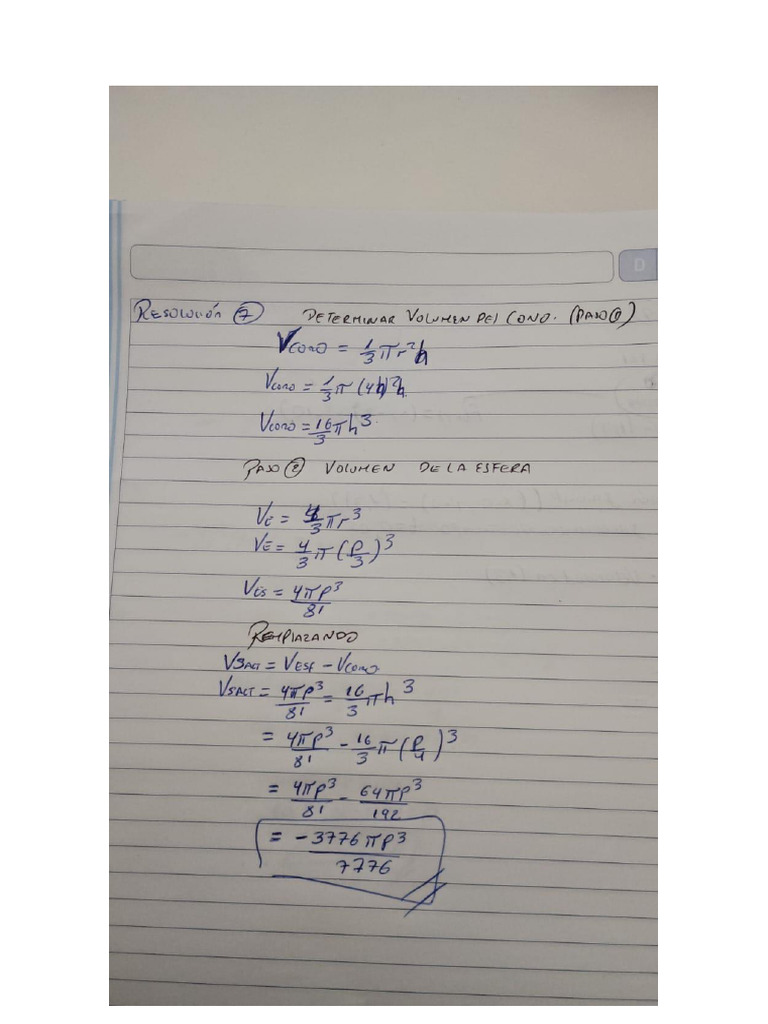 D
RESOLUCIÓN ⑦ DETERMINAR VOLUMEN DEL CONO. (PASO ①)
Vcono = 1/3 πr²h
Vcono = 1/3 π (4h)²h
Vcono = 16/3 πh³
PASO ② VOLUMEN DE LA ESFERA
VE = 4/3 πr³
VE = 4/3 π (P/3)³
VES = 4πP³/81
REMPLAZANDO
VSACT = VESF - VCONO
VSACT = 4πP³/81 - 16/3 πh³
= 4πP³/81 - 16/3 π (P/4)³
= 4πP³/81 - 64πP³/192
= - 3776πP³/7776